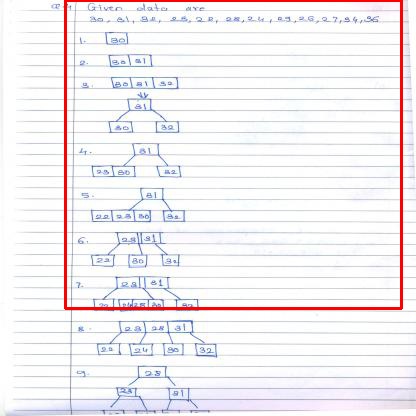 Q.4 Given data are
30, 31, 32, 23, 22, 28, 24, 29, 26, 27, 34, 36
1. 30
2. 30 31
3. 30 31 32
31
30 32
4. 31
23 30 32
5. 31
22 23 30 32
6. 23 31
22 30 32
7. 23 31
22 24 28 30 32
8. 23 28 31
22 24 30 32
9. 28
23 31